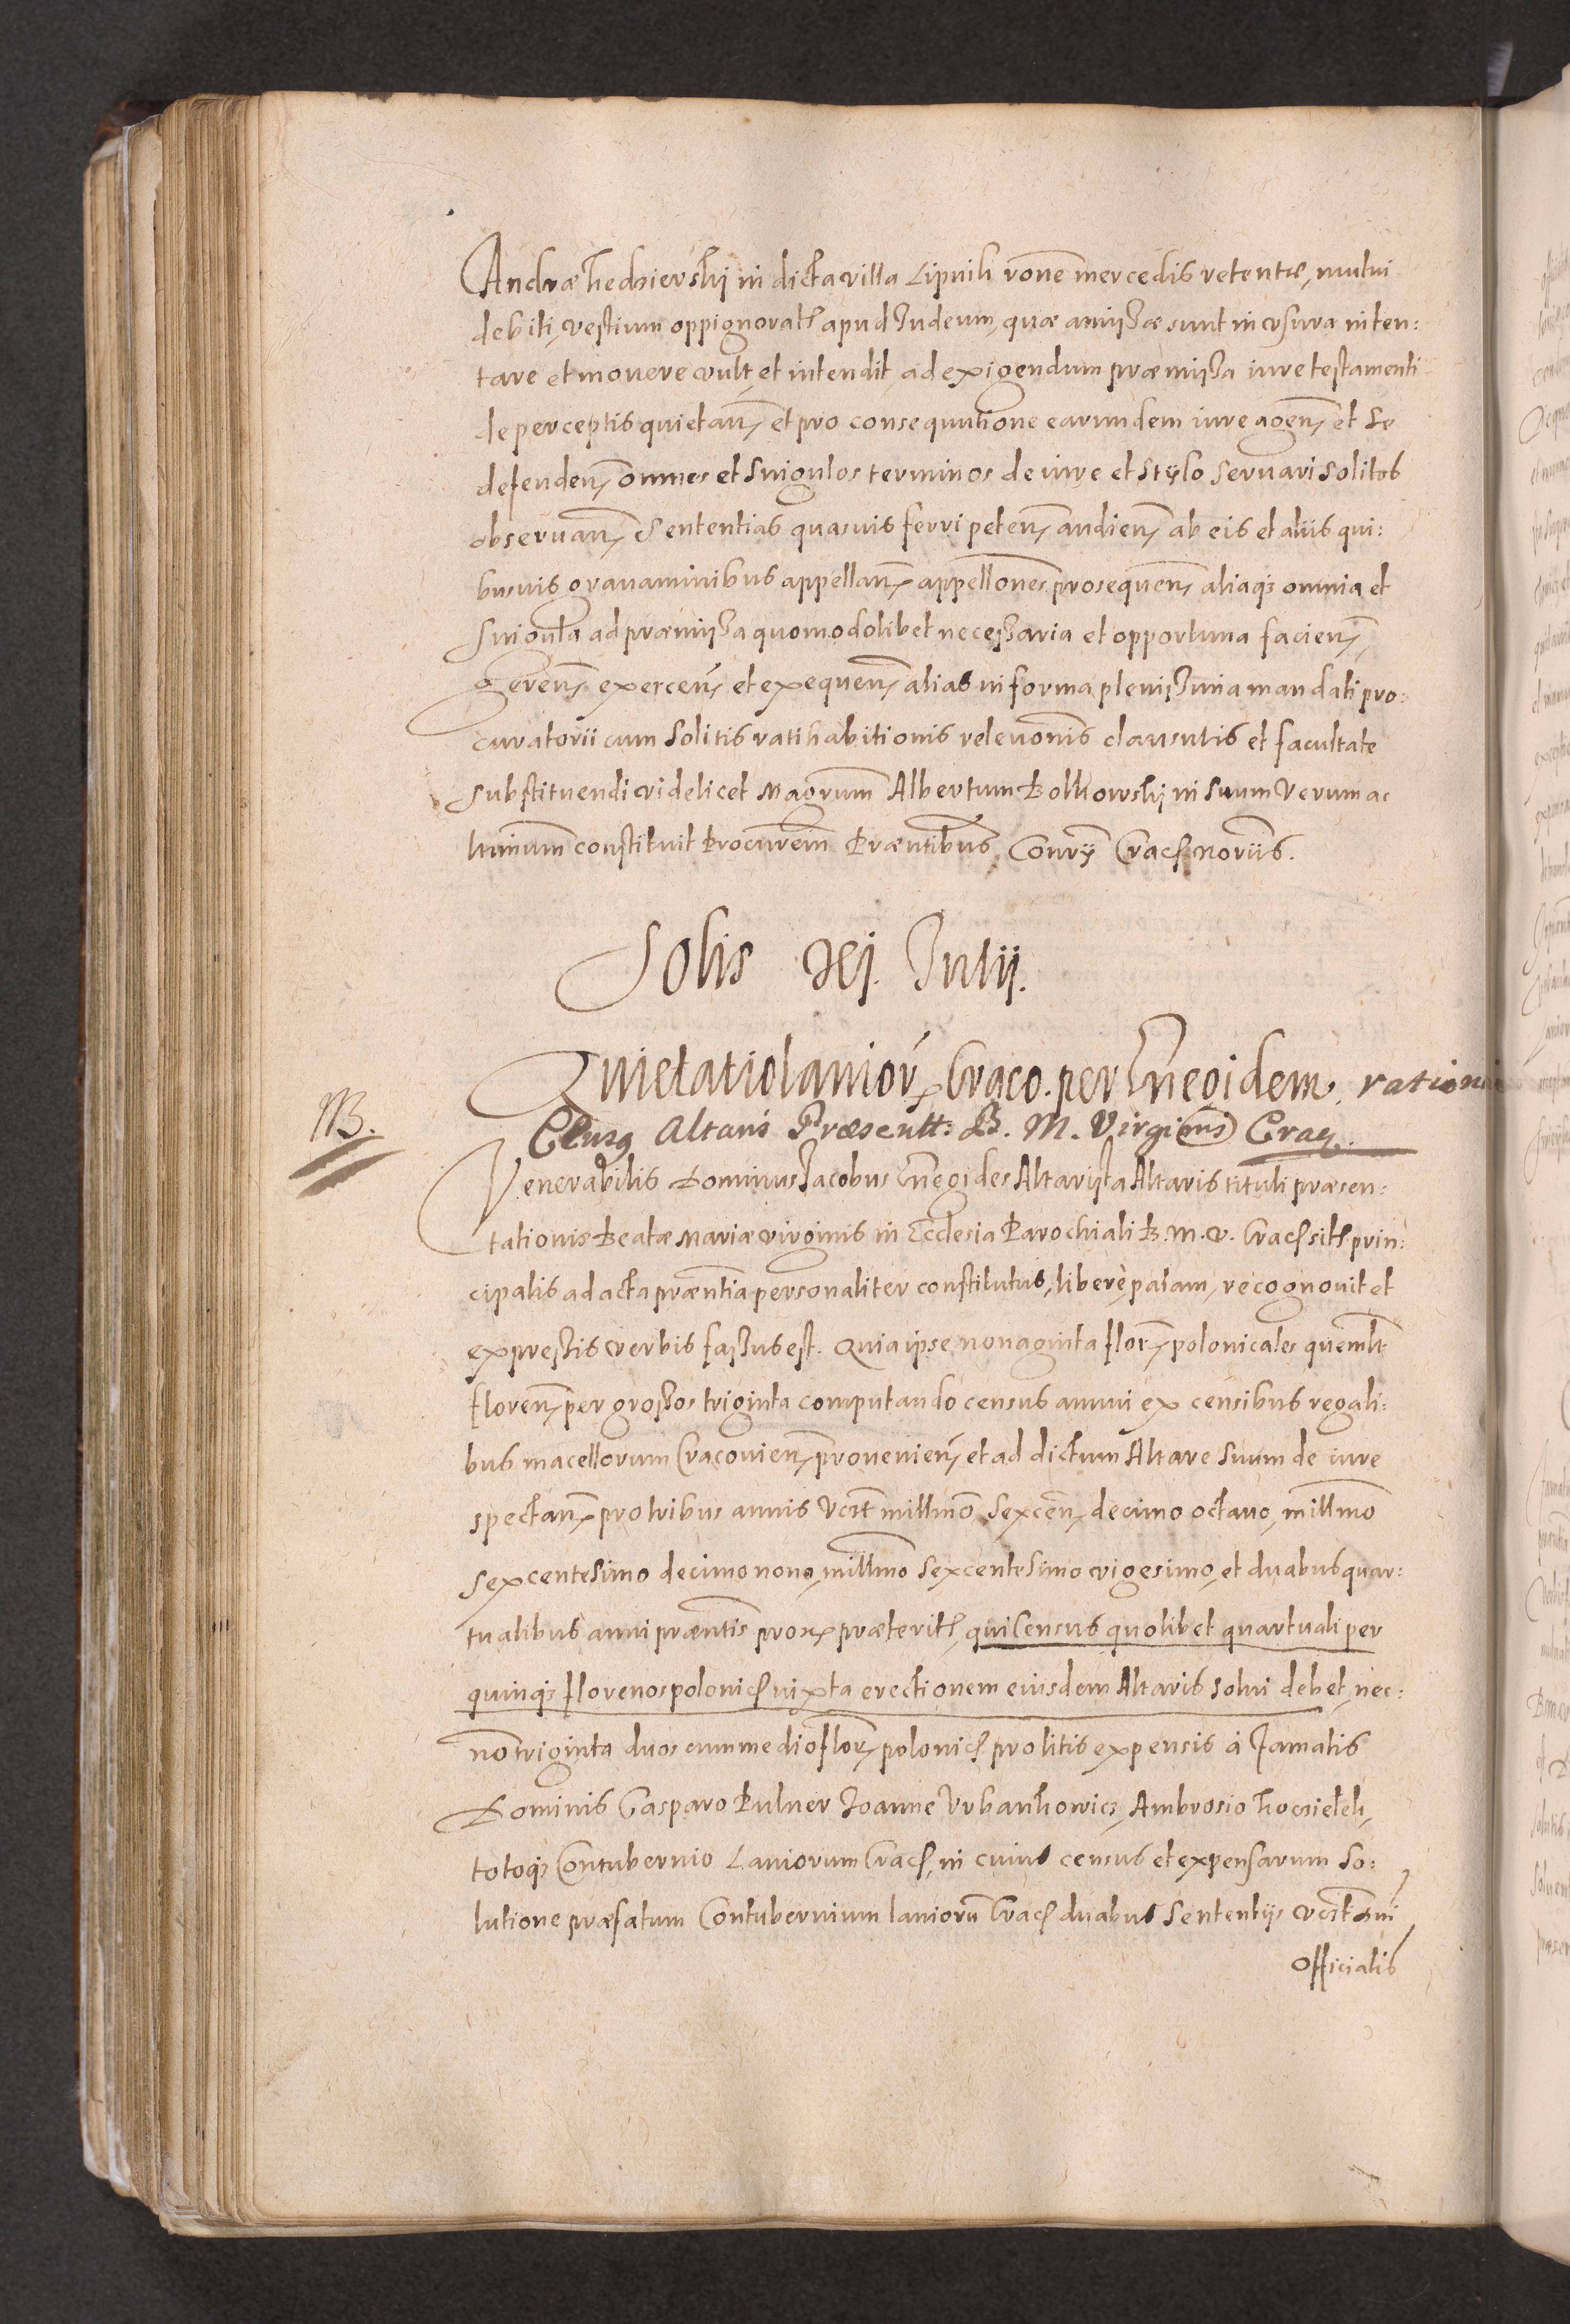 Andræ Kedzierskÿ in dicta villa Lipnik rone͂ mercedis retentæ, mutui
debiti, vestium oppignoratꝝ apud Judeum, quæ amissæ sunt in usura inten:
tare et mouere vult, et intendit, ad exigendum præmissa iure testamenti
de perceptis quietan͂, et pro consequutione earundem iure agen͂, et se
defenden͂, omnes et singulos terminos de iure et stÿlo seruari solitos
obseruan͂, Sententias quasuis ferri peten͂, audien͂, ab eis et aliis qui:
busuis grauaminibus appellan͂, appellones͂ prosequen͂, aliaqꝫ omnia et
singula ad præmissa quomodolibet necessaria et opportuna facien͂,
geren͂, exercen͂, et exequen͂, alias in forma plenissima mandati pro:
curatorii cum solitis ratihabitionis releuonis͂ clausulis et facultate
substituendi videlicet Magrum͂ Albertum Bolkowskÿ in suum verum ac
ltimum͂ constituit Procurem͂ Præntibus͂ Conrÿ͂ Crac. noriis͂.
Solis XI. Julij.
Quietatio laniorꝝ Craco. per Enegidem, rationi
Census Altaris Præsentt: B. M. Virginis Crac.
NB.
Venerabilis Dominus Jacobus Enegides Altarista Altaris tituli præsen:
tationis Beatæ Mariæ virginis in Ecclesia Parochiali B. M. V. Crac. sitꝝ prin:
cipalis ad acta præntia͂ personaliter constitutus, liberè, palam, recognouit et
expressis verbis fassus est. Quia ipse nonaginta flor͂, polonicales quemlt͂
floren͂, per grossos triginta computando census annui ex censibus regali:
bus macellorum Cracouien͂, prouenien͂, et ad dictum Altare suum de iure
spectan͂, pro tribus annis vdelt͂ millmo͂ sexcen͂, decimo octauo, millmo͂
sexcentesimo decimo nono, millmo͂ sexcentesimo vigesimo, et duabus quar:
tualibus anni præntis͂ prox, præteritꝝ, qui Census quolibet quartuali per
quinqꝫ florenos polonic. iuxta erectionem eiusdem Altaris solui debet, nec:
no͂ triginta duos cum medio flor͂, polonic. pro litis expensis à famatis
Dominis Casparo Pulner Joanne Urbankowicz, Ambrosio Koczielek,
totoqꝫ Contubernio Laniorum Crac. in cuius census et expensarum so:
lutione præfatum Contubernium laniorum͂ Crac. duabus Sententiis vdelt͂ dni
Officialis